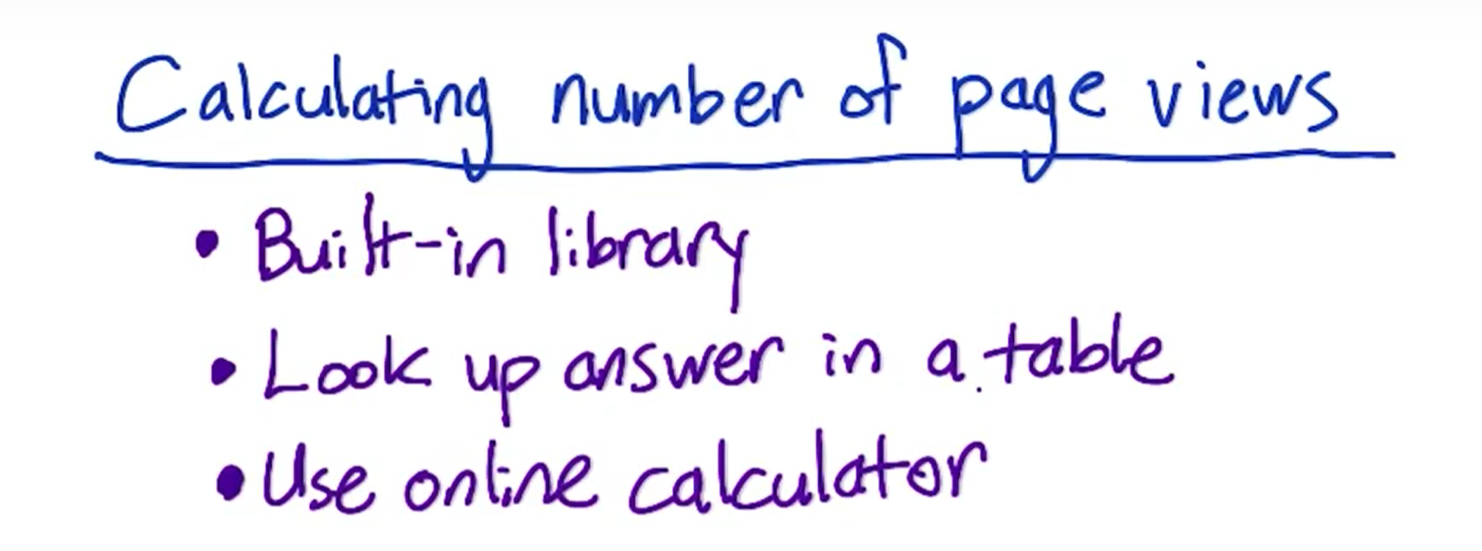 Calculating number of page views
• Built-in library
• Look up answer in a table
• Use online calculator